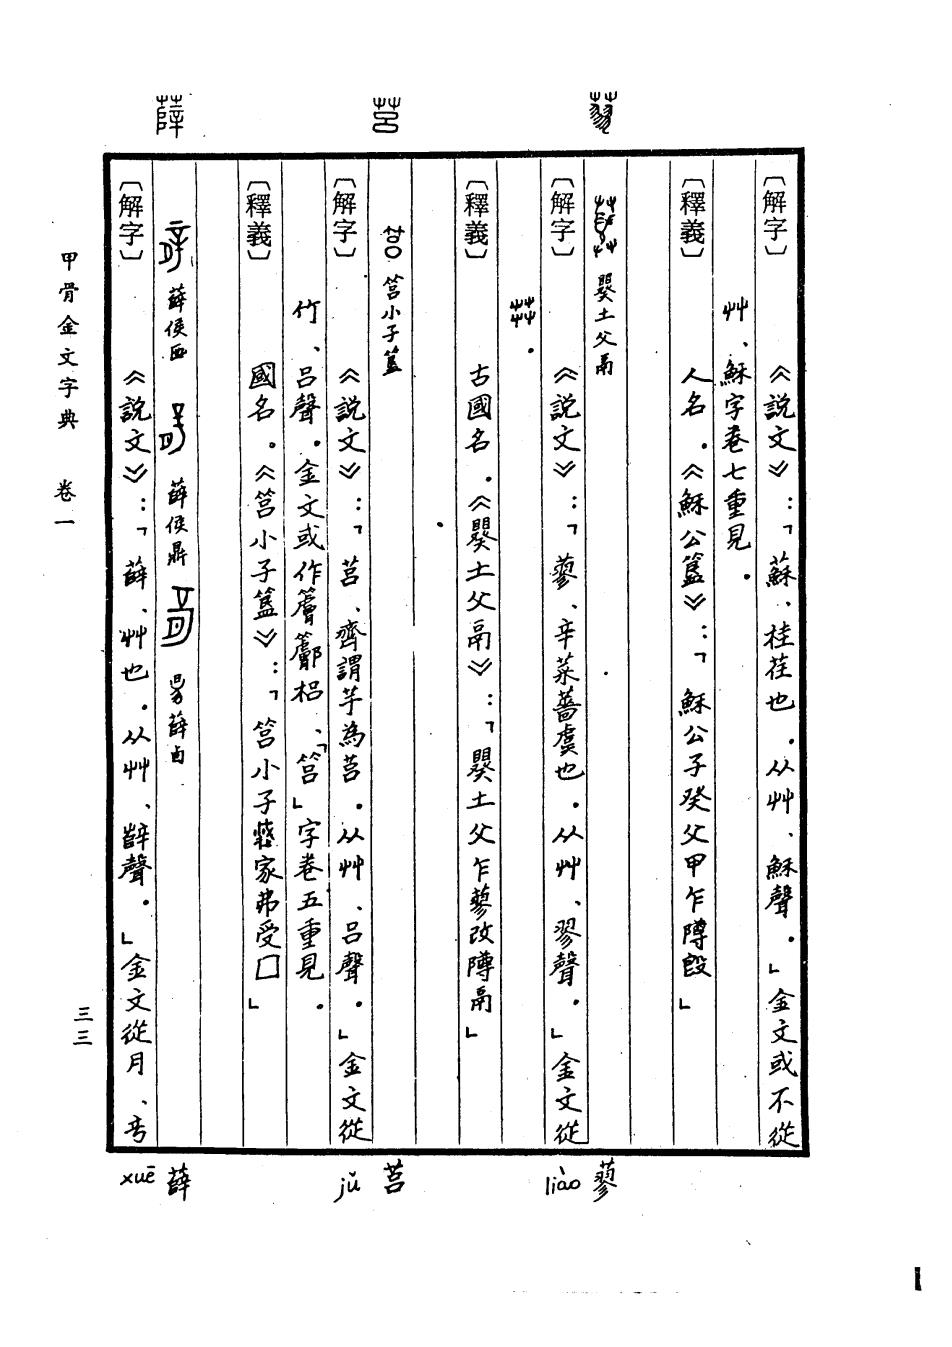 〔解字〕 《說文》:「蘇、桂荏也．从艸、穌聲．」金文或不從
艸、穌字卷七重見．
〔釋義〕 人名．《穌公簋》:「穌公子癸父甲乍障𣪘」
蓼
㠱土父鬲
〔解字〕 《說文》:「蓼、辛菜薔虞也．从艸、翏聲．」金文從
茻．
〔釋義〕 古國名．《土父鬲》:「土父乍蓼改障鬲」
莒
筥小子簋
〔解字〕 《說文》:「莒、齊謂芋為莒．从艸、呂聲．」金文從
竹、呂聲．金文或作梠、「筥」字卷五重見．
〔釋義〕 國名．《筥小子簋》:「筥小子家弗受□」
薛
薛侯匜 薛侯鼎 薛卣
〔解字〕 《說文》:「薛、艸也．从艸、辥聲．」金文從月、䇂
甲骨金文字典 卷一
三三
蓼 liào
莒 jǔ
薛 xuē